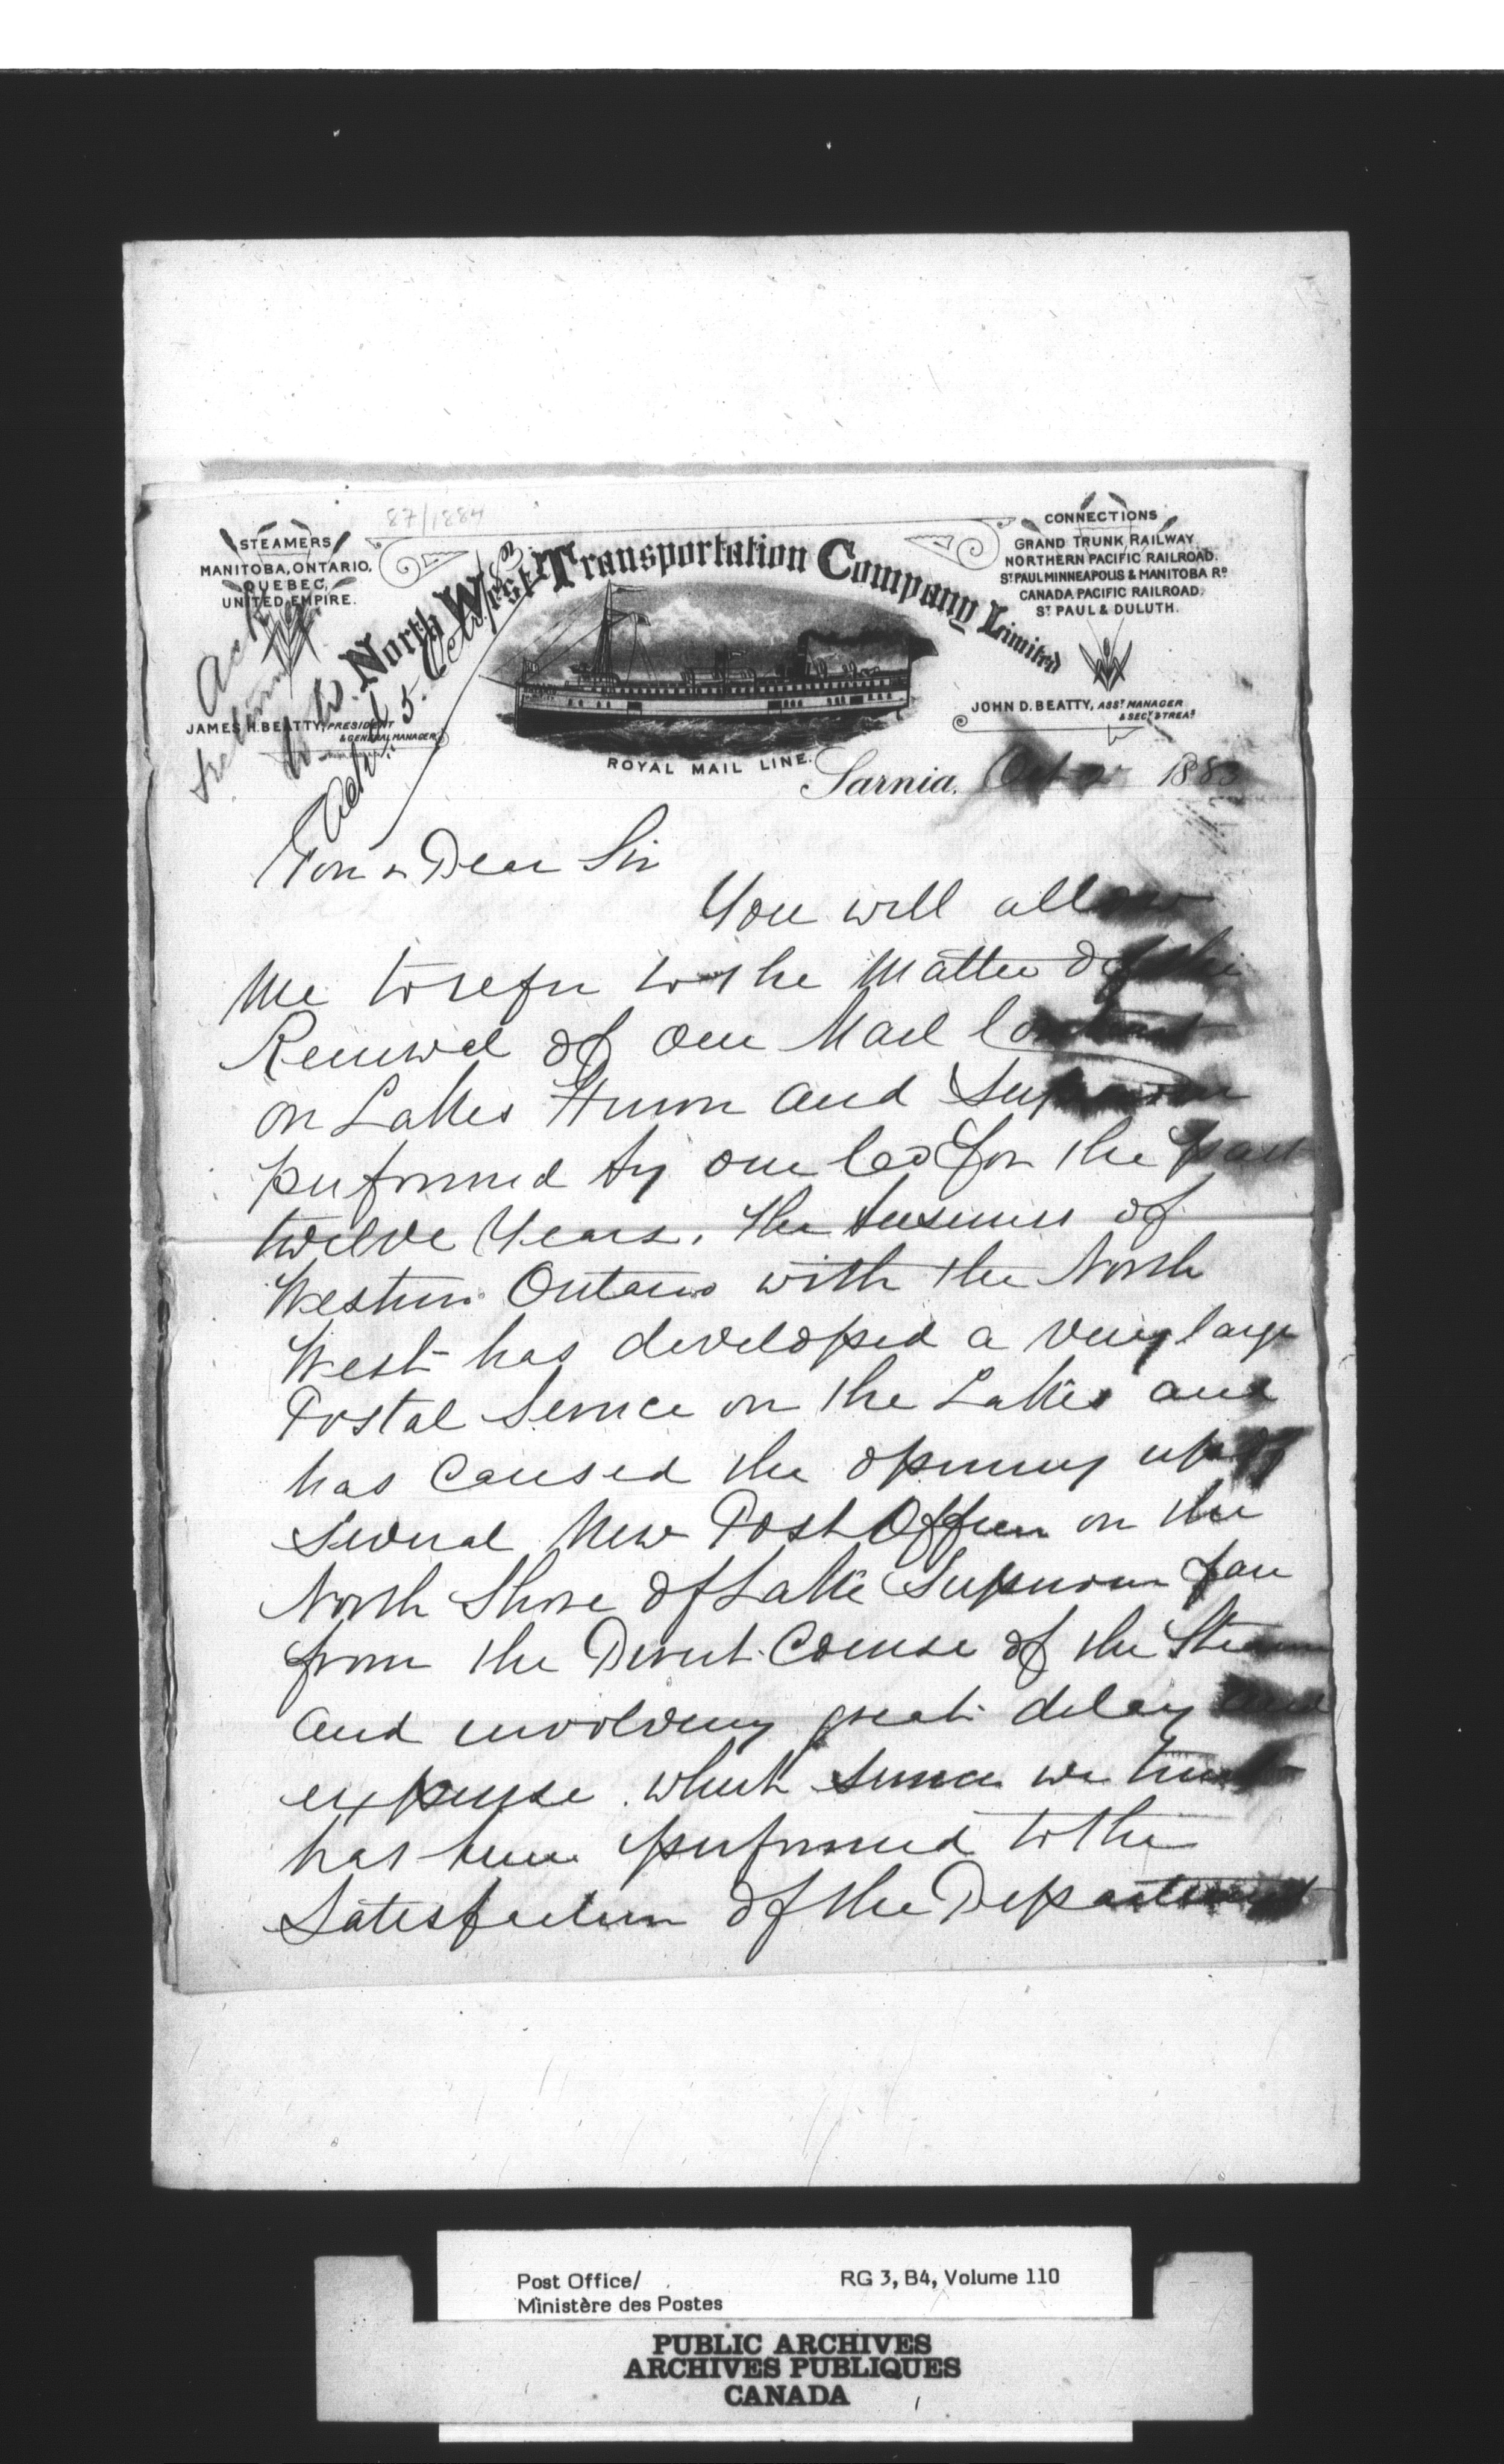 87/1884
STEAMERS
MANITOBA, ONTARIO,
QUEBEC,
UNITED EMPIRE.
North West Transportation Company Limited
CONNECTIONS
GRAND TRUNK RAILWAY
NORTHERN PACIFIC RAILROAD.
ST PAUL MINNEAPOLIS & MANITOBA RD
CANADA PACIFIC RAILROAD.
ST PAUL & DULUTH.
JAMES H. BEATTY, PRESIDENT
& GENERAL MANAGER
JOHN D. BEATTY, ASST MANAGER
& SECY & TREAS
ROYAL MAIL LINE.
Ack
W. W.
Ackd 5. Oct 83
Sarnia, Oct 1883
Hon & Dear Sir
You will allow
me to refer to the Matter of the
Renewal of our Mail Contract
on Lakes Huron and Superior
performed by our Co for the past
twelve Years. The business of
Western Ontario with the North
West has developed a very large
Postal Service on the Lakes and
has caused the opening up of
several New Post Offices on the
North Shore of Lake Superior far
from the Direct Course of the Steamers
and involving great delay and
expense which service we trust
has been performed to the
Satisfaction of the Department
Post Office/
Ministère des Postes
RG 3, B4, Volume 110
PUBLIC ARCHIVES
ARCHIVES PUBLIQUES
CANADA